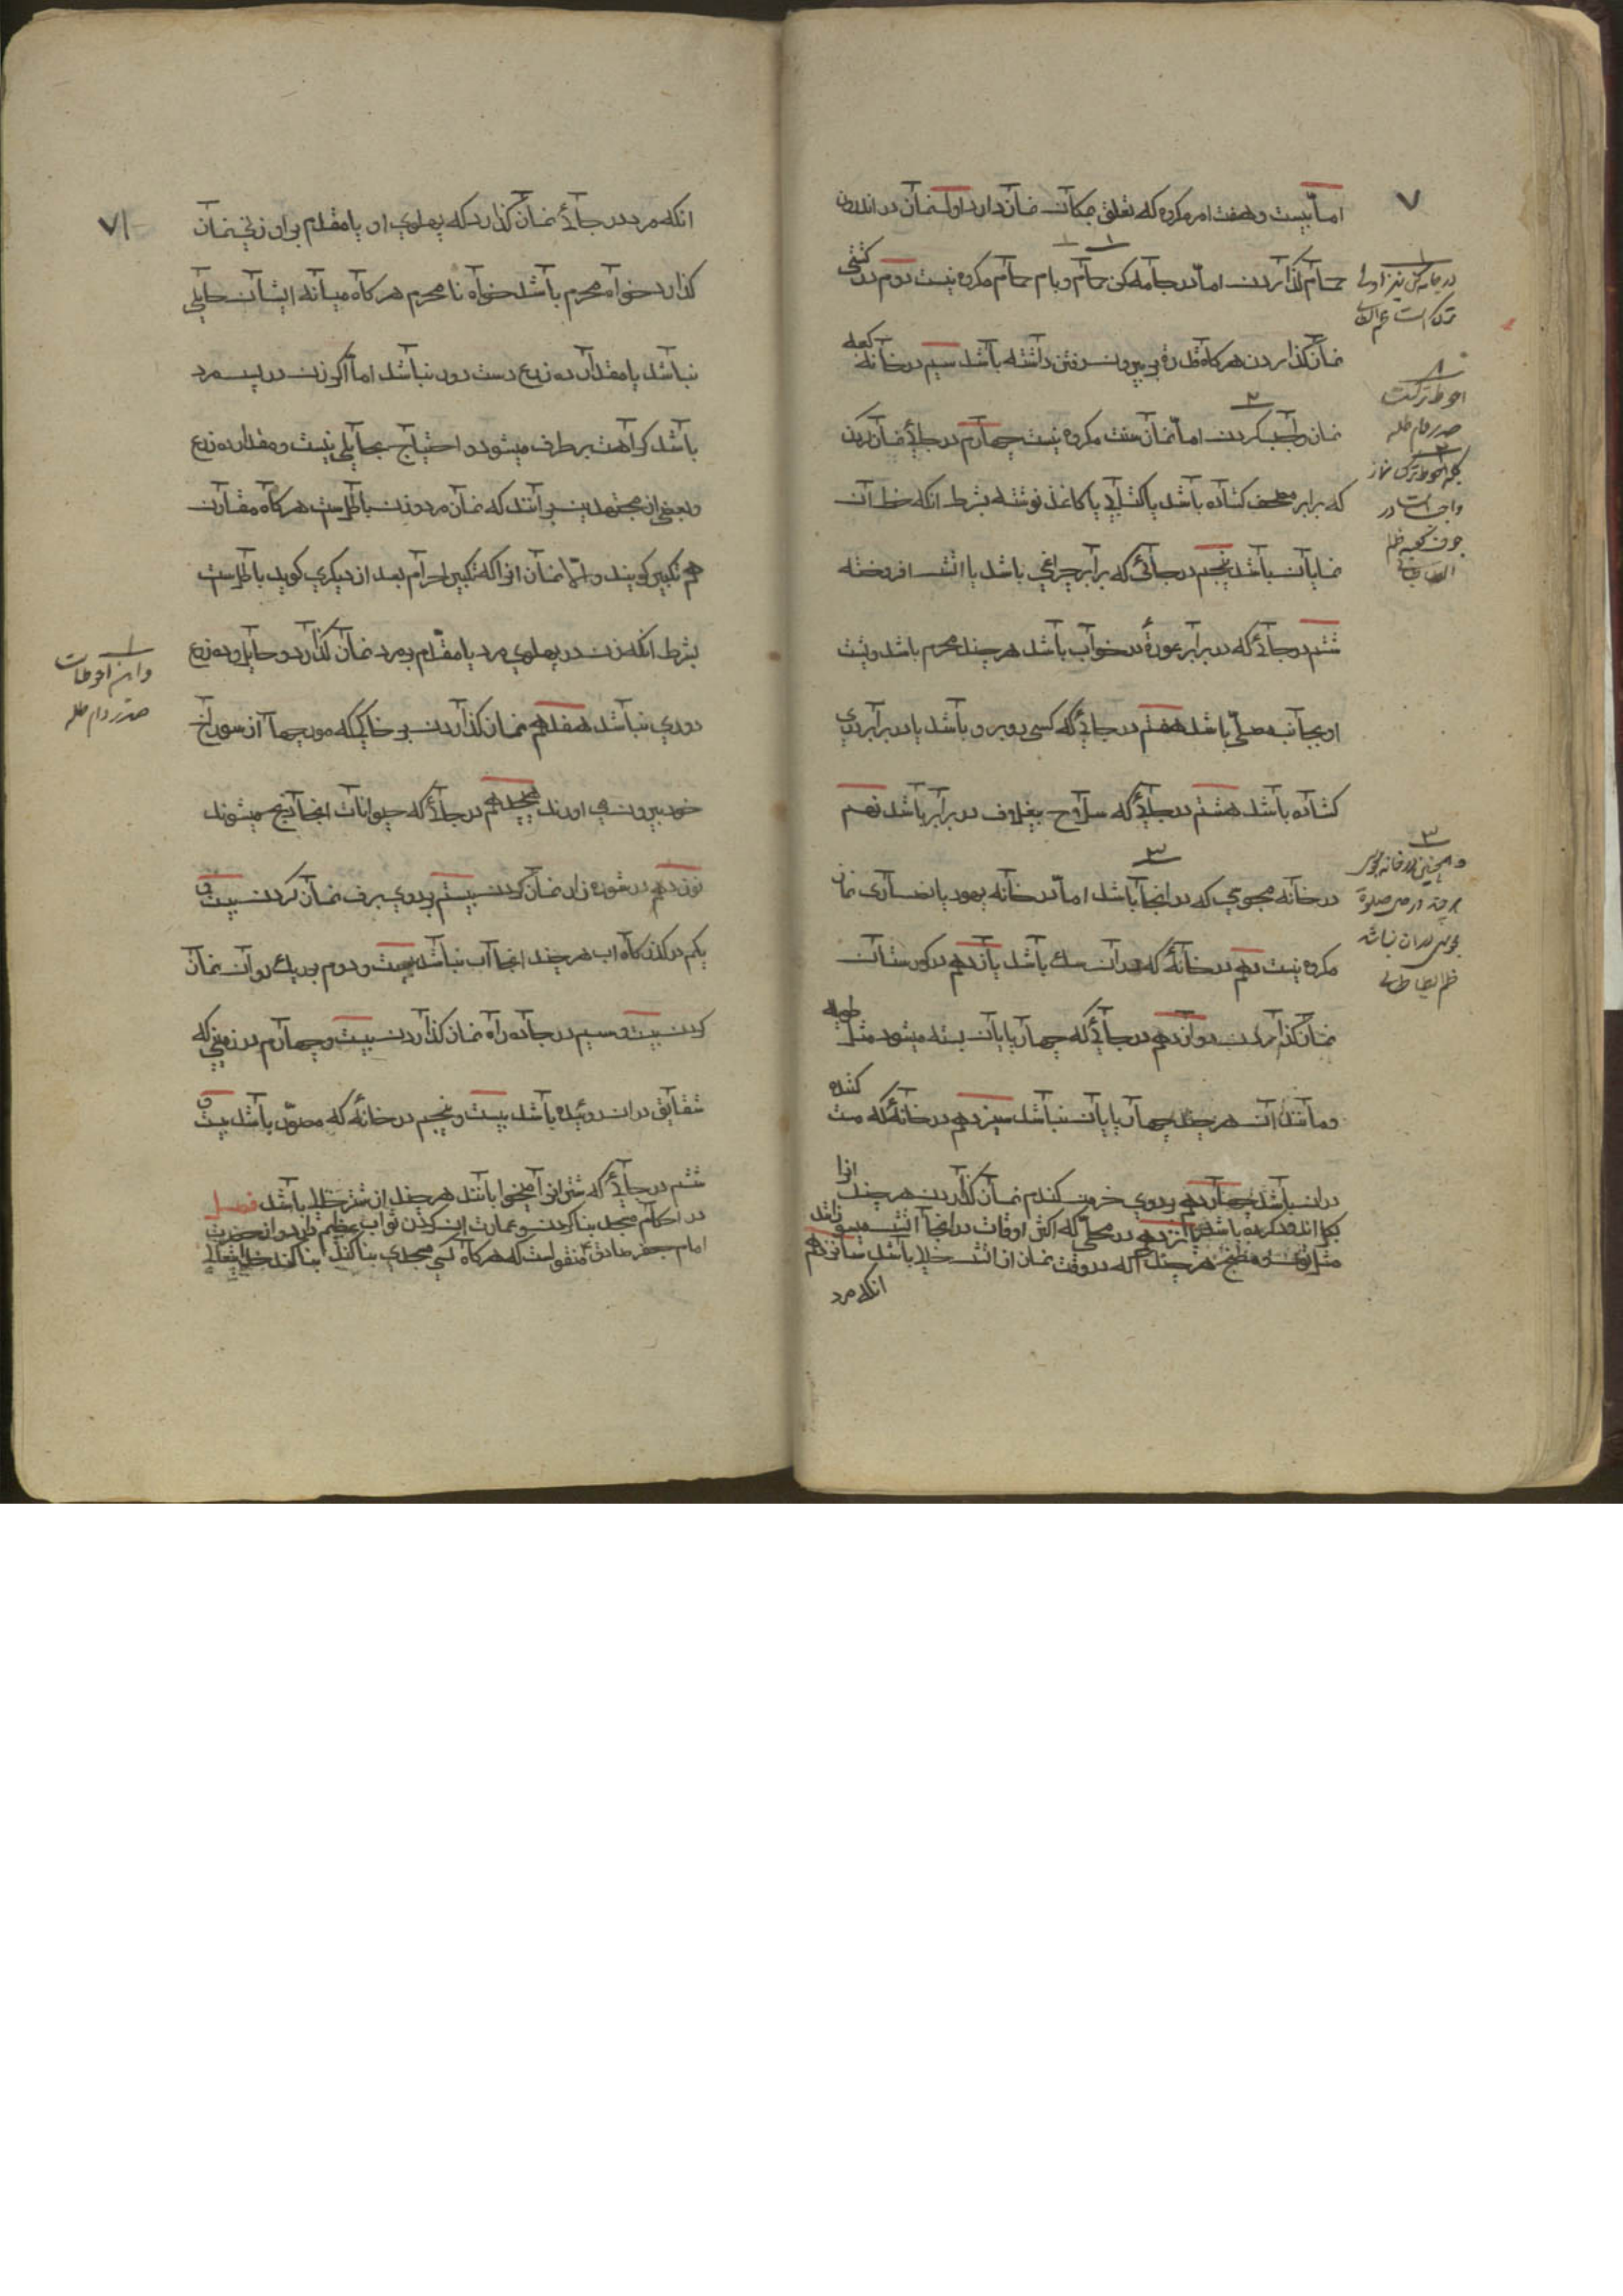 ۷
اما بیست و هفت امر مکروه که تعلق بمکان نماز دارد اول نماز در اندرون
حمام گذاردن اما در جامه کن حمام و بام حمام مکروه نیست دوم در کشتی
نماز گذاردن هر گاه قدرة بر بیرون رفتن داشته باشد سیم در خانه کعبه
نماز واجب کردن اما نماز سنت مکروه نیست چهارم در جائی نماز کردن
که برابر مصحف کشاده باشد یا کتابی یا کاغذ نوشته بشرط انکه خط ان
نمایان باشد پنجم در جائی که برابر چراغی باشد یا اتش افروخته
ششم در جائی که در برابر عورة در خواب باشد هر چند محرم باشد و پشت
او بجانب مصلی باشد هفتم در جائی که کسی روبرو باشد یا در برابر دری
کشاده باشد هشتم در جائی که سلاح بیغلاف در برابر باشد نهم
در خانه مجوسی که در انجا باشد اما در خانه یهود یا نصاری نماز
مکروه نیست دهم در خانه که در ان سک باشد یازدهم در کورستان
نماز گذاردن دوازدهم در جائی که چهارپایان بسته میشود مثل طویله
و مانند ان هر چند چهارپایان نباشد سیزدهم در خانه که مست کننده
در ان باشد چهاردهم بر روی خرمن کندم نماز گذاردن هر چند انرا
بکل اندود کرده باشند پانزدهم در محلی که اکثر اوقات در انجا اتش میسوزانند
مثل تون و مطبخ هر چند که در وقت نماز از اتش خالی باشد شانزدهم
انکه مرد
۱
در جامه کن نیز اولی
ترک است
۸
احوط ترکست
صدر دام ظله
۲
بلکه احوط ترک نماز
واجبست در
جوف کعبه
۳
و همچنین در خانه مجوس
هر چند در حین صلوة
مجوسی در ان نباشد
۷۱
انکه مرد در جائی نماز گذارد که پهلوی او یا مقدم بر او زنی نماز
گذارد خواه محرم باشد خواه نا محرم هر گاه میانه ایشان حایلی
نباشد یا مقدار ده زرع دست دور نباشد اما اگر زن در پس مرد
باشد کراهت برطرف میشود و احتیاج بحایلی نیست و مقدار ده زرع
و بعضی از مجتهدین برآنند که نماز مرد و زن باطلست هر گاه مقارن
هم تکبیر کویند و الا نماز انرا که تکبیر احرام بعد از دیکری کوید باطلست
بشرط انکه زن در پهلوی مرد یا مقدم بر مرد نماز گذارد و حایل و ده زرع
دوری نباشد هفدهم نماز گذاردن بر خاکی که مورچها از سوراخ
خود بیرون می اورند هیجدهم در جائی که حیوانات انجا ذبح میشوند
نوزدهم در شوره زار نماز کردن بیستم بر روی برف نماز کردن بیست و
یکم در گذرگاه اب هر چند انجا اب نباشد بیست و دوم بر ریک روان نماز
کردن بیست و سیم در جاده راه نماز گذاردن بیست و چهارم در زمینی که
شقایق در ان روئیده باشد بیست و پنجم در خانه که مصور باشد بیست و
ششم در جائی که شتر انرا میخوابانند هر چند از شتر خالی باشد فصل
در احکام مسجد بنا کردن و عمارت ان کردن ثواب عظیم دارد و از حضرت
امام جعفر صادق ع منقولست که هر گاه کسی مسجدی بنا کند بنا کند خدایتعالی
۱
و این احوطست
صدر دام ظله